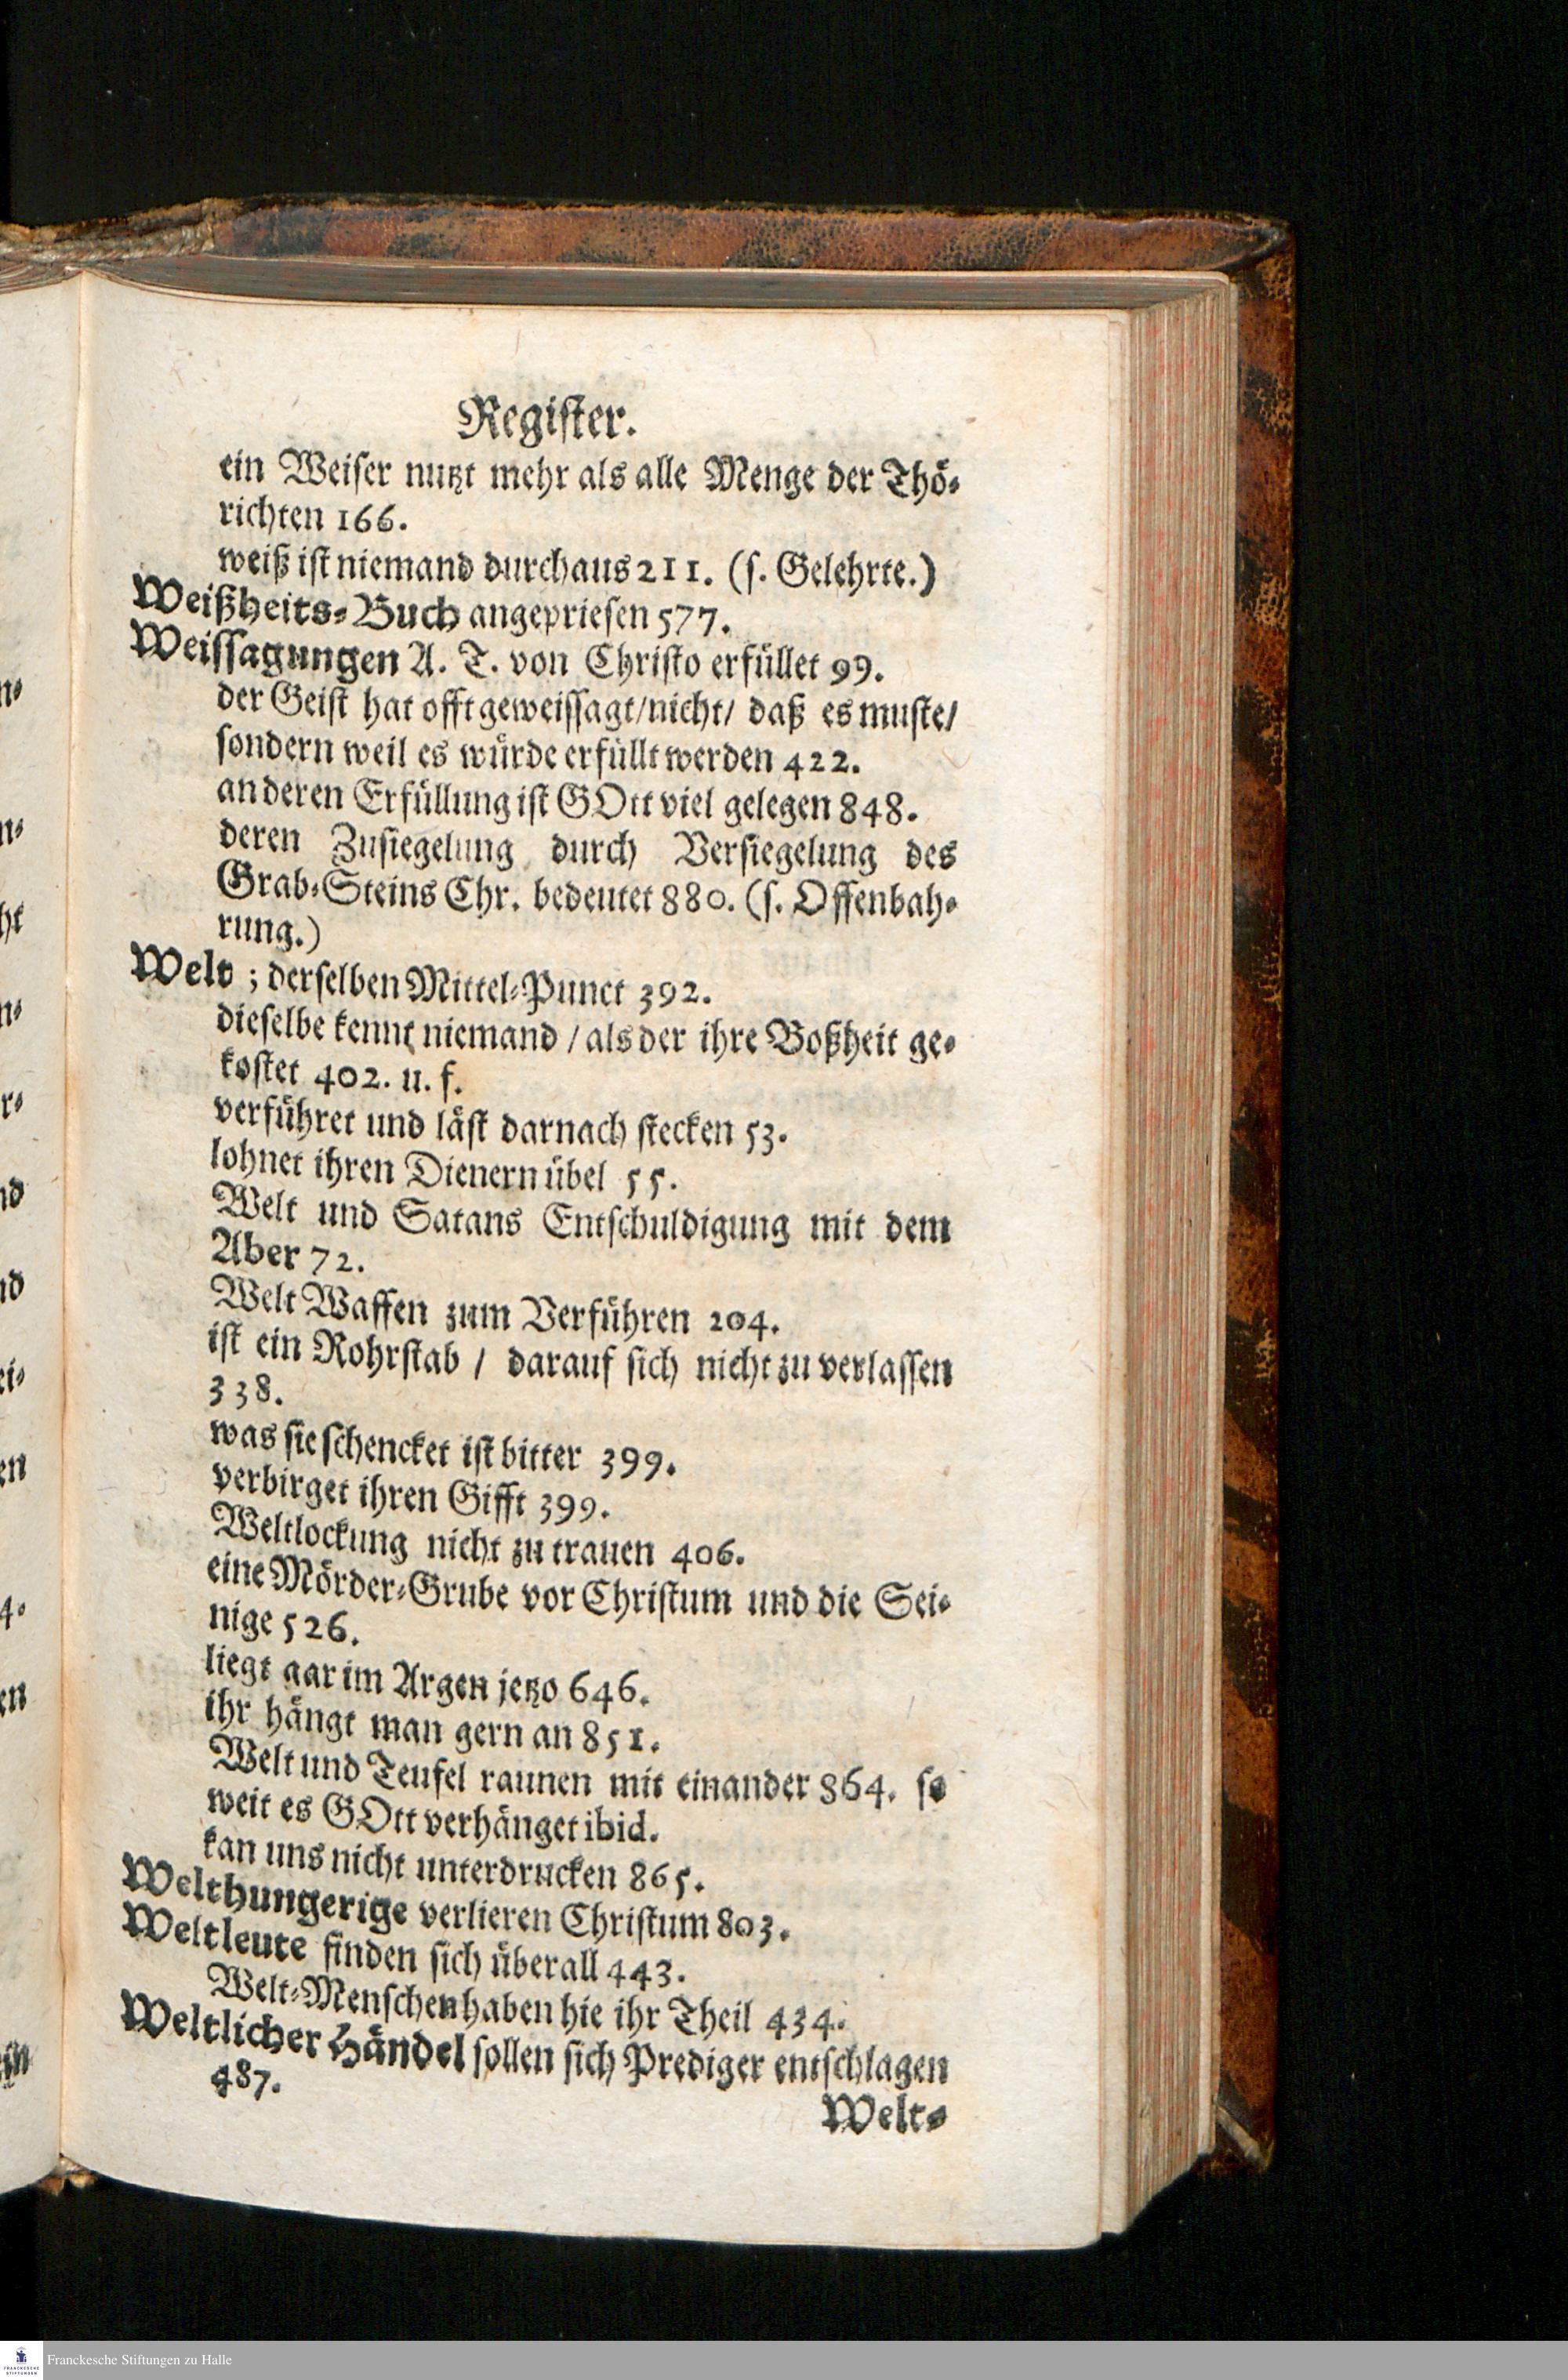 Register.
ein Weiser nutzt mehr als alle Menge der Thö-
richten 166.
weiß ist niemand durchaus 211. (s. Gelehrte.)
Weißheits-Buch angepriesen 577.
Weissagungen A. T. von Christo erfüllet 99.
der Geist hat offt geweissagt/nicht/ daß es muste/
sondern weil es würde erfüllt werden 422.
an deren Erfüllung ist GOtt viel gelegen 848.
deren Zusiegelung durch Versiegelung des
Grab-Steins Chr. bedeutet 880. (s. Offenbah-
rung.)
Welt ; derselben Mittel-Punct 392.
dieselbe kennt niemand / als der ihre Boßheit ge-
kostet 402. u. f.
verführet und läst darnach stecken 53.
lohnet ihren Dienern übel 55.
Welt und Satans Entschuldigung mit dem
Aber 72.
Welt Waffen zum Verführen 204.
ist ein Rohrstab / darauf sich nicht zu verlassen
338.
was sie schencket ist bitter 399.
verbirget ihren Gifft 399.
Weltlockung nicht zu trauen 406.
eine Mörder-Grube vor Christum und die Sei-
nige 526.
liegt gar im Argen jetzo 646.
ihr hängt man gern an 851.
Welt und Teufel raunen mit einander 864. so
weit es GOtt verhänget ibid.
kan uns nicht unterdrucken 865.
Welthungerige verlieren Christum 803.
Weltleute finden sich überall 443.
Welt-Menschen haben hie ihr Theil 434.
Weltlicher Händel sollen sich Prediger entschlagen
487.
Welt-
Franckesche Stiftungen zu Halle